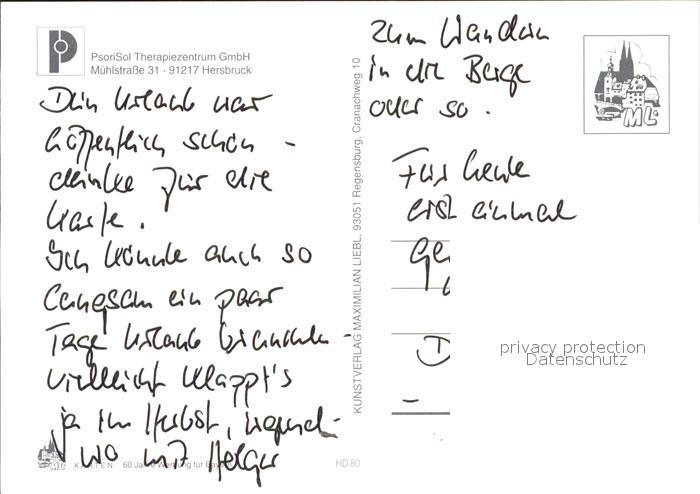 PsoriSol Therapiezentrum GmbH
Mühlstraße 31 · 91217 Hersbruck
Dein Urlaub war
hoffentlich schön –
danke für die
Karte.
Ich könnte auch so
langsam ein paar
Tage Urlaub brauchen –
vielleicht klappt's
ja im Herbst, irgend-
wo mit Helga
zum Wandern
in die Berge
oder so.
Für heute
erst einmal
Ge
D
KUNSTVERLAG MAXIMILIAN LIEBL, 93051 Regensburg, Cranachweg 10
ML
privacy protection
Datenschutz
ML KARTEN 60 Jahre Werbung für Bayern
HD 80